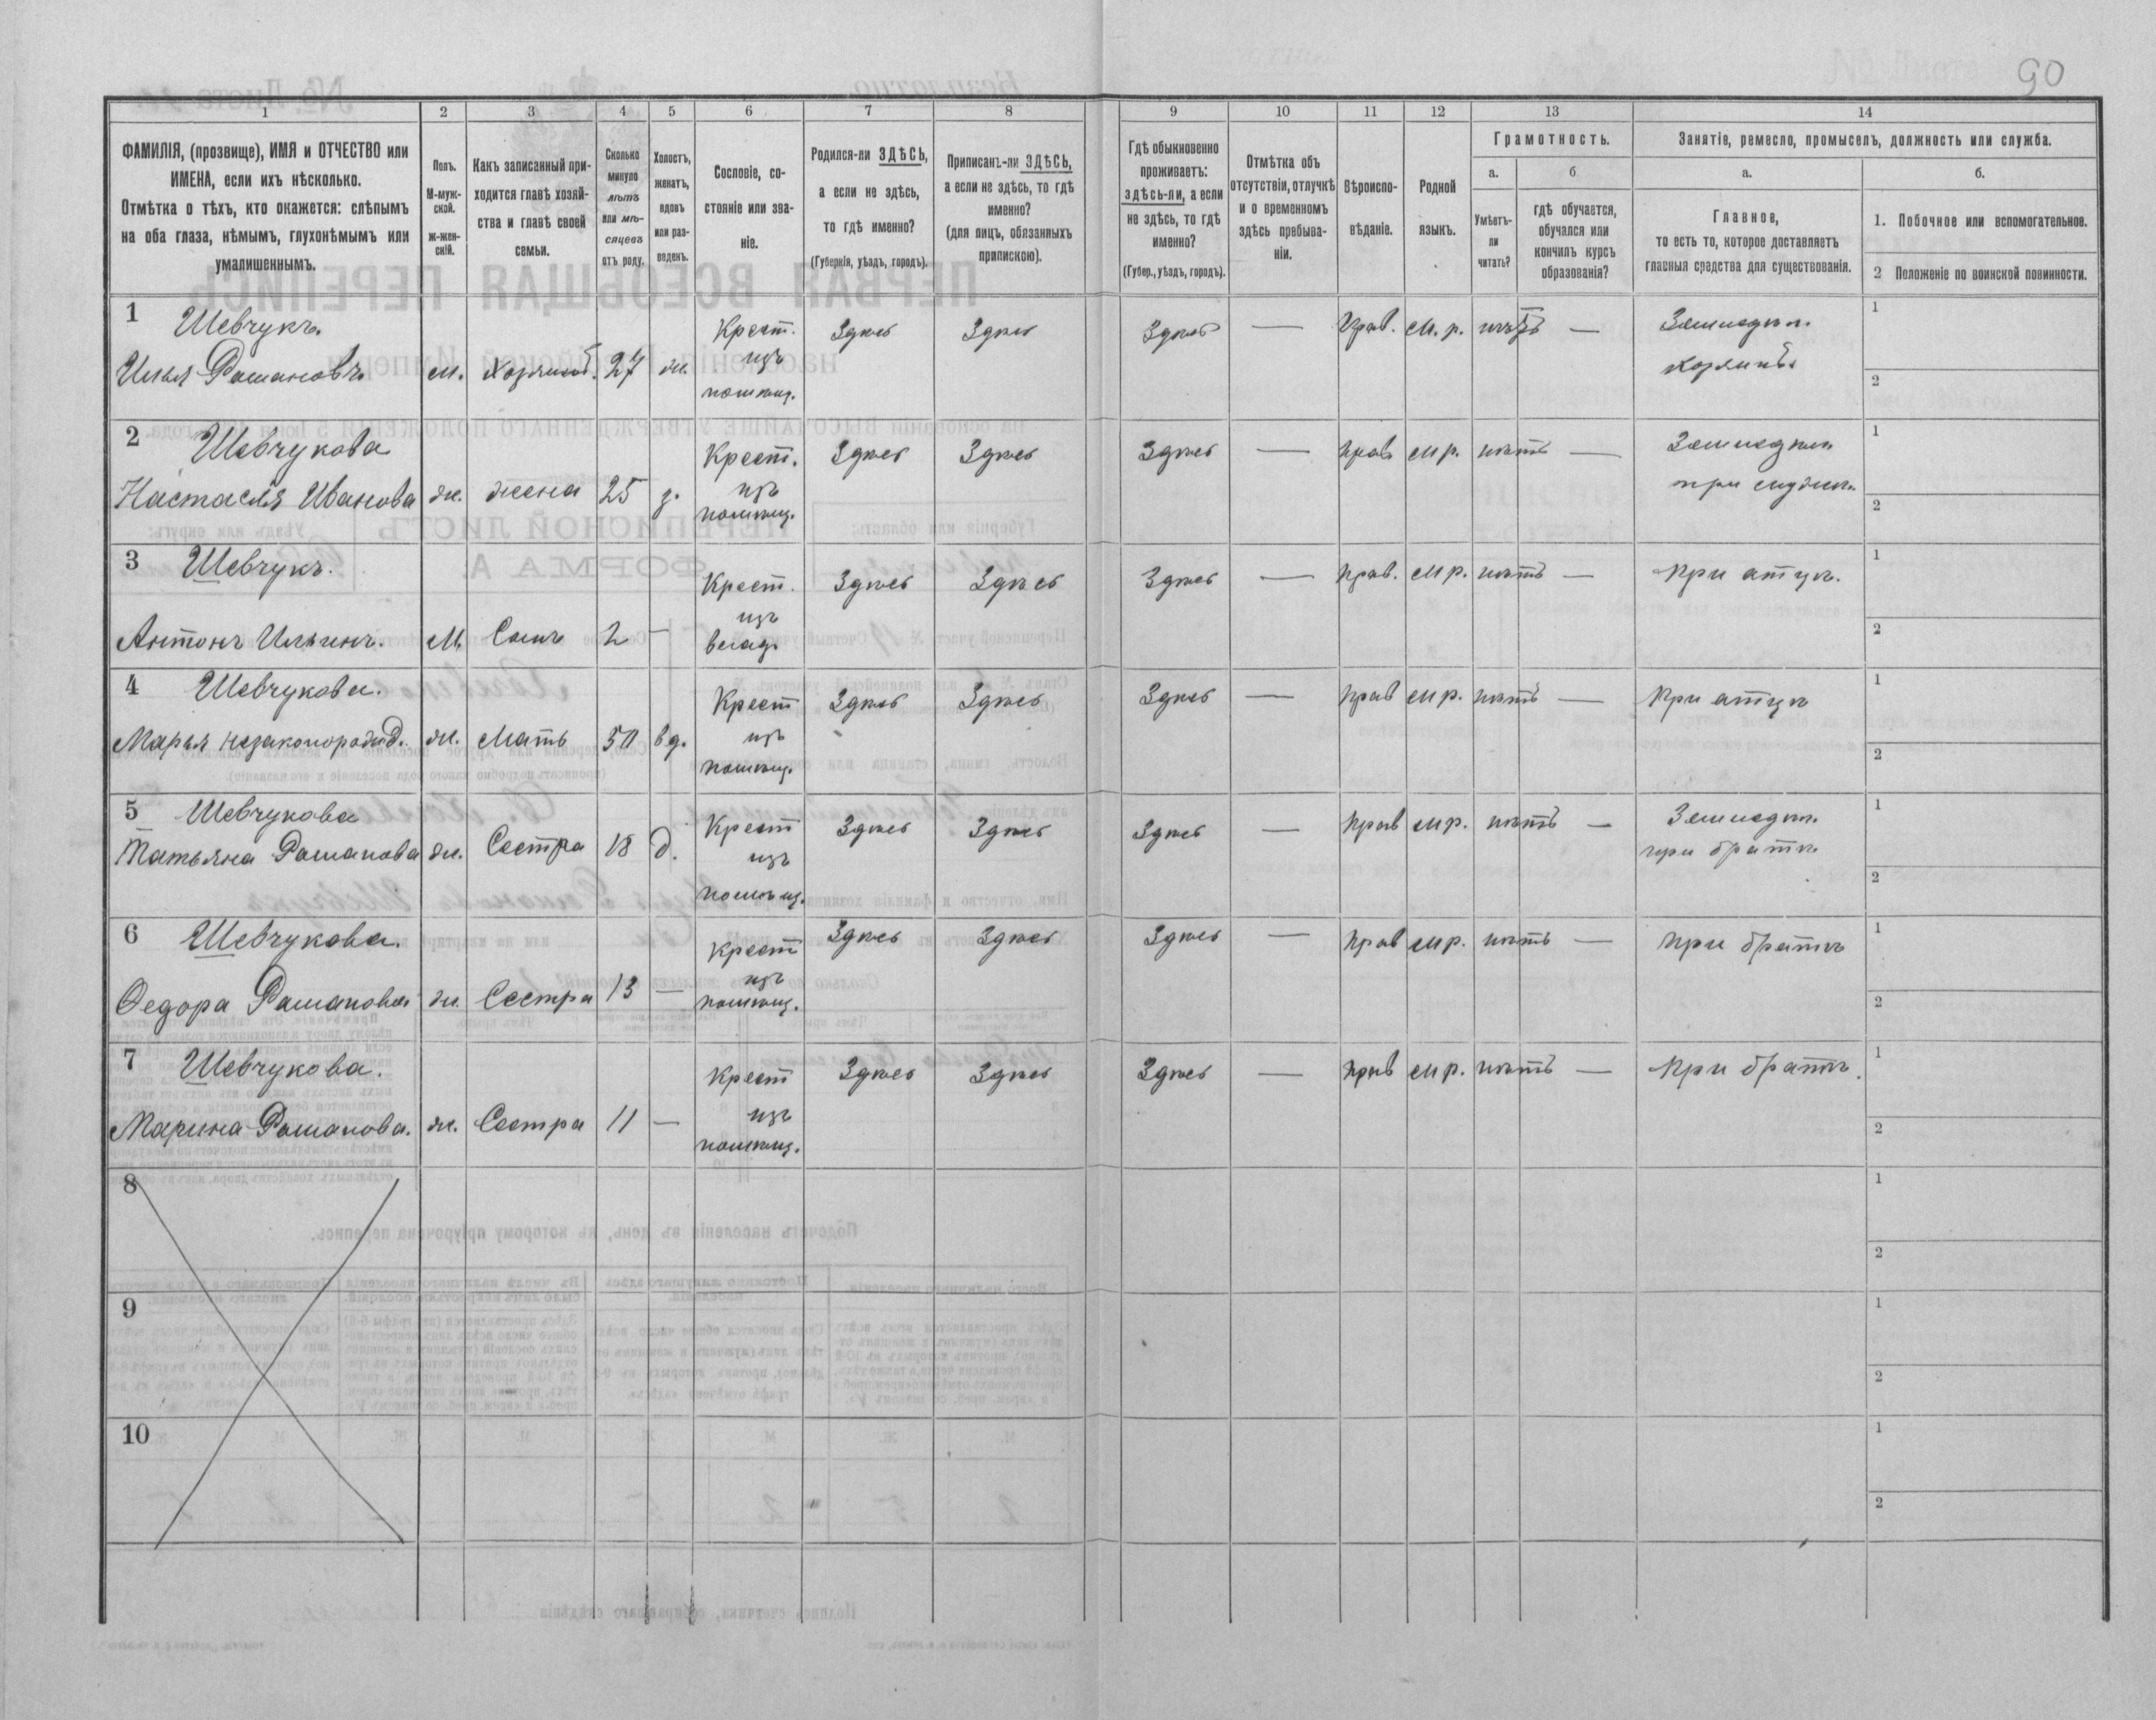 90
1 2 3 4 5 6 7 8 9 10 11 12 13 14
ФАМИЛІЯ, (прозвище), ИМЯ и ОТЧЕСТВО или
ИМЕНА, если ихъ нѣсколько.
Отмѣтка о тѣхъ, кто окажется: слѣпымъ
на оба глаза, нѣмымъ, глухонѣмымъ или
умалишеннымъ.
Полъ.
М-муж-
ской.
ж-жен-
скій.
Какъ записанный при-
ходится главѣ хозяй-
ства и главѣ своей
семьи.
Сколько
минуло
лѣтъ
или мѣ-
сяцевъ
отъ роду.
Холостъ,
женатъ,
вдовъ
или раз-
веденъ.
Сословіе, со-
стояніе или зва-
ніе.
Родился-ли ЗДѢСЬ,
а если не здѣсь,
то гдѣ именно?
(Губернія, уѣздъ, городъ).
Приписанъ-ли ЗДѢСЬ,
а если не здѣсь, то гдѣ
именно?
(для лицъ, обязанныхъ
припискою).
Гдѣ обыкновенно
проживаетъ:
здѣсь-ли, а если
не здѣсь, то гдѣ
именно?
(Губер., уѣздъ, городъ).
Отмѣтка объ
отсутствіи, отлучкѣ
и о временномъ
здѣсь пребыва-
ніи.
Вѣроиспо-
вѣданіе.
Родной
языкъ.
Грамотность.
а.
Умѣетъ-
ли
читать?
б
гдѣ обучается,
обучался или
кончилъ курсъ
образованія?
Занятіе, ремесло, промыселъ, должность или служба.
а.
Главное,
то есть то, которое доставляетъ
главныя средства для существованія.
б.
1. Побочное или вспомогательное.
2 Положеніе по воинской повинности.
1 Шевчукъ.
Илья Романовъ м. Хозяинъ 27 ж. Крест.
изъ
помѣщ. Здѣсь Здѣсь Здѣсь — Прав. м. р. нѣтъ — Земледѣл.
хозяинъ
1
2
2 Шевчукова
Настасья Иванова ж. жена 25 з. Крест.
изъ
помѣщ. Здѣсь Здѣсь Здѣсь — прав мр. нѣтъ — Земледѣл
при мужѣ.
1
2
3 Шевчукъ.
Антонъ Ильинъ. М. Сынъ 2 — Крест.
изъ
Здѣсь Здѣсь Здѣсь — прав. мр. нѣтъ — при отцѣ.
1
2
4 Шевчукова.
Марья незаконорожд. ж. Мать 50 вд. Крест
изъ
помѣщ. Здѣсь Здѣсь Здѣсь — прав мр. нѣтъ — При отцѣ
1
2
5 Шевчукова
Татьяна Романова ж. Сестра 18 д. Крест
изъ
помѣщ. Здѣсь Здѣсь Здѣсь — прав мр. нѣтъ — Земледѣл.
при братѣ.
1
2
6 Шевчукова.
Федора Романова ж. Сестра 13 — Крест
изъ
помѣщ. Здѣсь Здѣсь Здѣсь — прав мр. нѣтъ — при братѣ
1
2
7 Шевчукова.
Марина Романова. ж. Сестра 11 — Крест
изъ
помѣщ. Здѣсь Здѣсь Здѣсь — прав мр. нѣтъ — При братѣ.
1
2
8
1
2
9
1
2
10
1
2